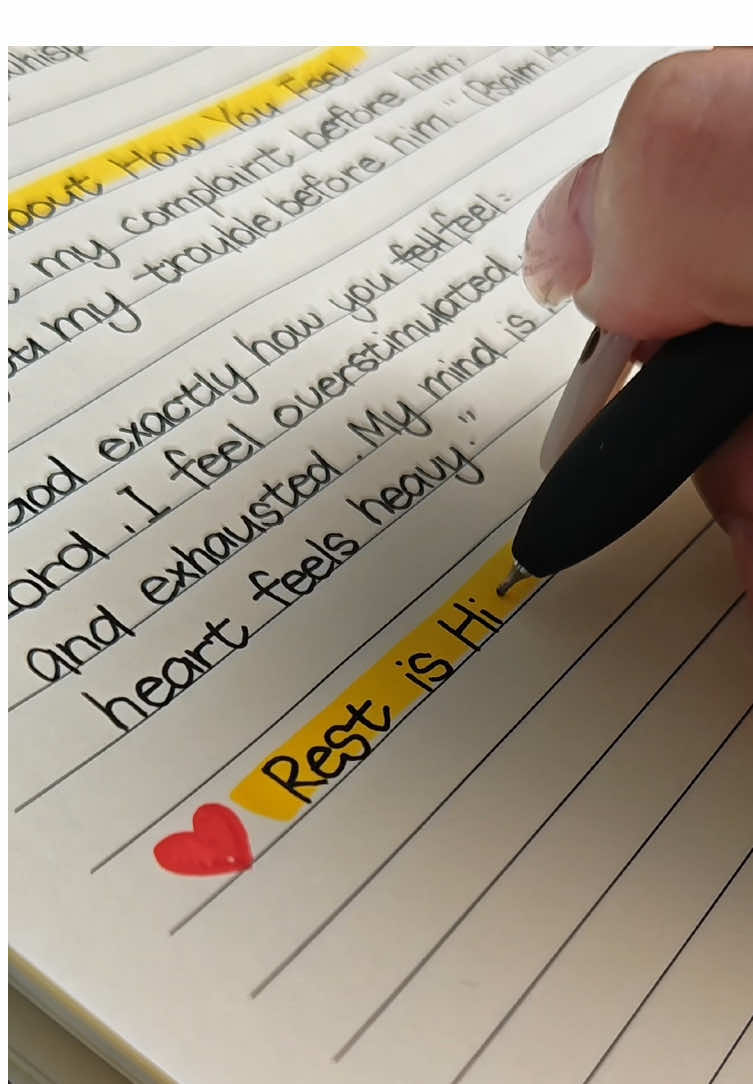 whisp
bout How You Feel.
my complaint before him;
my trouble before him." (Psalm 142
od exactly how you fell feel:
ord, I feel overstimulated,
and exhausted. My mind is
heart feels heavy."
Rest is Hi